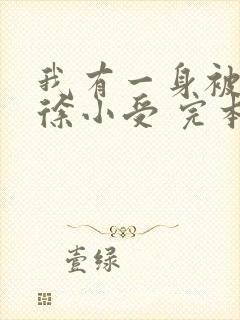 我有一身被
徐小受 完本
壹绿